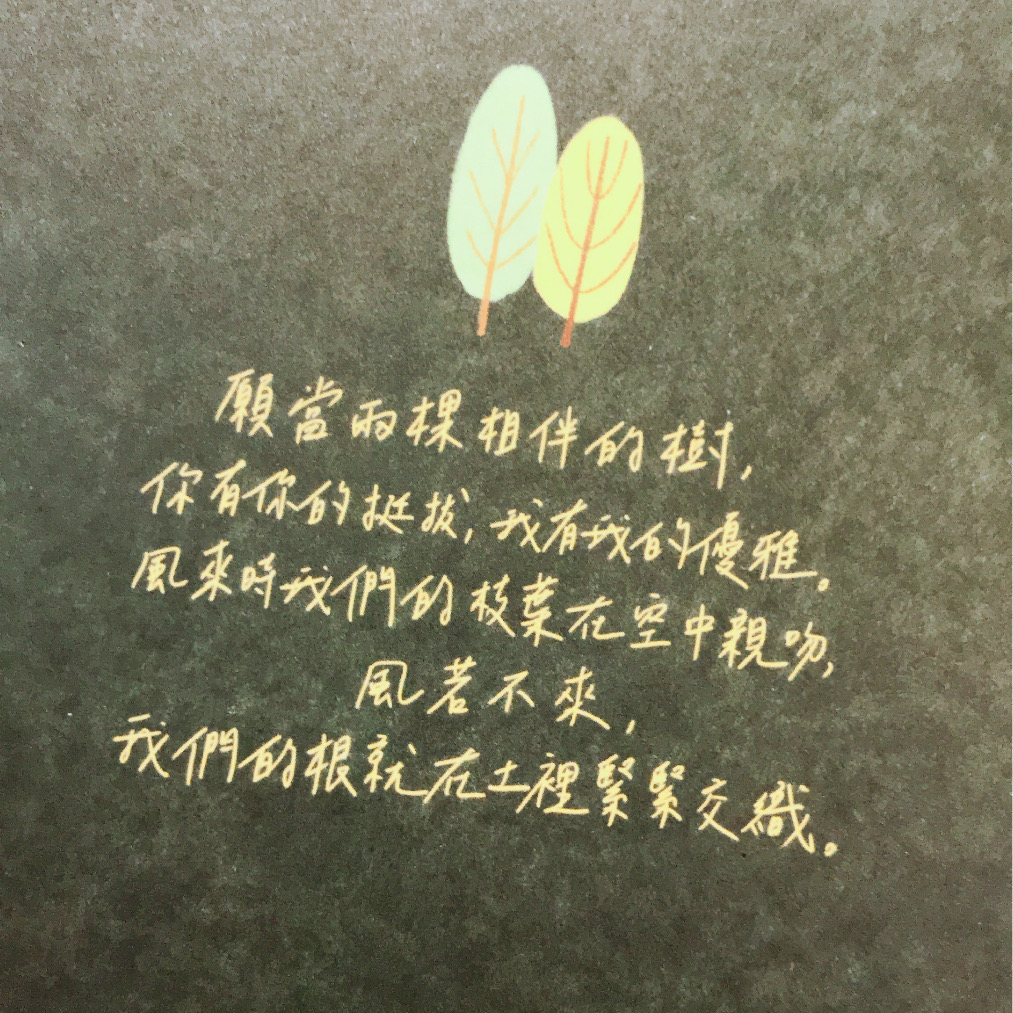 願當兩棵相伴的樹,
你有你的挺拔,我有我的優雅。
風來時我們的枝葉在空中親吻,
風若不來,
我們的根就在土裡緊緊交織。